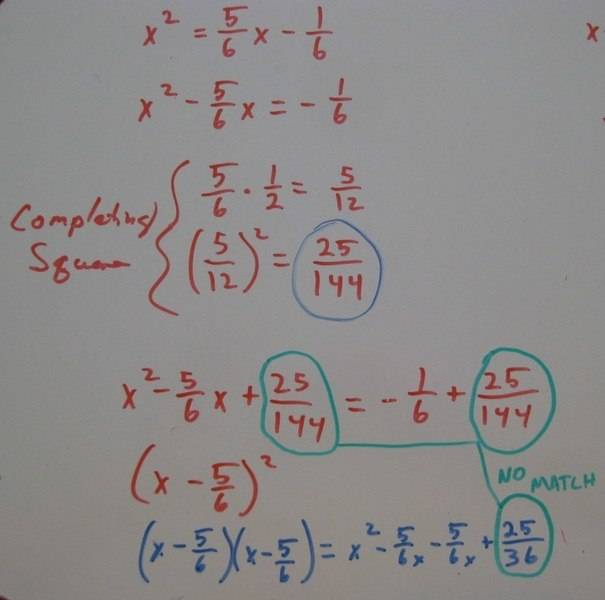 x² = 5/6 x - 1/6
x² - 5/6 x = - 1/6
Completing Square
5/6 · 1/2 = 5/12
(5/12)² = 25/144
x² - 5/6 x + 25/144 = - 1/6 + 25/144
(x - 5/6)²
NO MATCH
(x - 5/6)(x - 5/6) = x² - 5/6 x - 5/6 x + 25/36
x